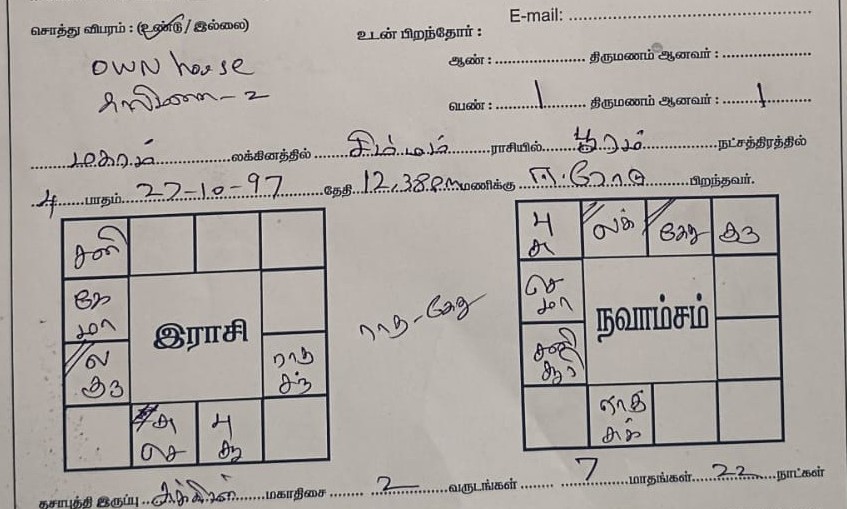 E-mail: ........................................
சொத்து விபரம் : (உண்டு / இல்லை)
உடன் பிறந்தோர் :
own house
ஆண் : ...................... திருமணம் ஆனவர் : ......................
- 2
பெண் : ..........1.......... திருமணம் ஆனவர் : ..........1..........
மகரம் லக்கினத்தில் சிம்மம் ராசியில் பூரம் நட்சத்திரத்தில்
4 பாதம் 27-10-97 தேதி 12.38 P.m மணிக்கு ஈரோடு பிறந்தவர்.
சனி
பு சு லக் கேது குரு
கே மா
செ மா
இராசி
ராகு - கேது
நவாம்சம்
ல குரு
ராகு சந்
சனி சூரி
சு செ
பு சூ
ராகு
தசாபுத்தி இருப்பு சுக்கிரன் மகாதிசை 2 வருடங்கள் 7 மாதங்கள் 22 நாட்கள்